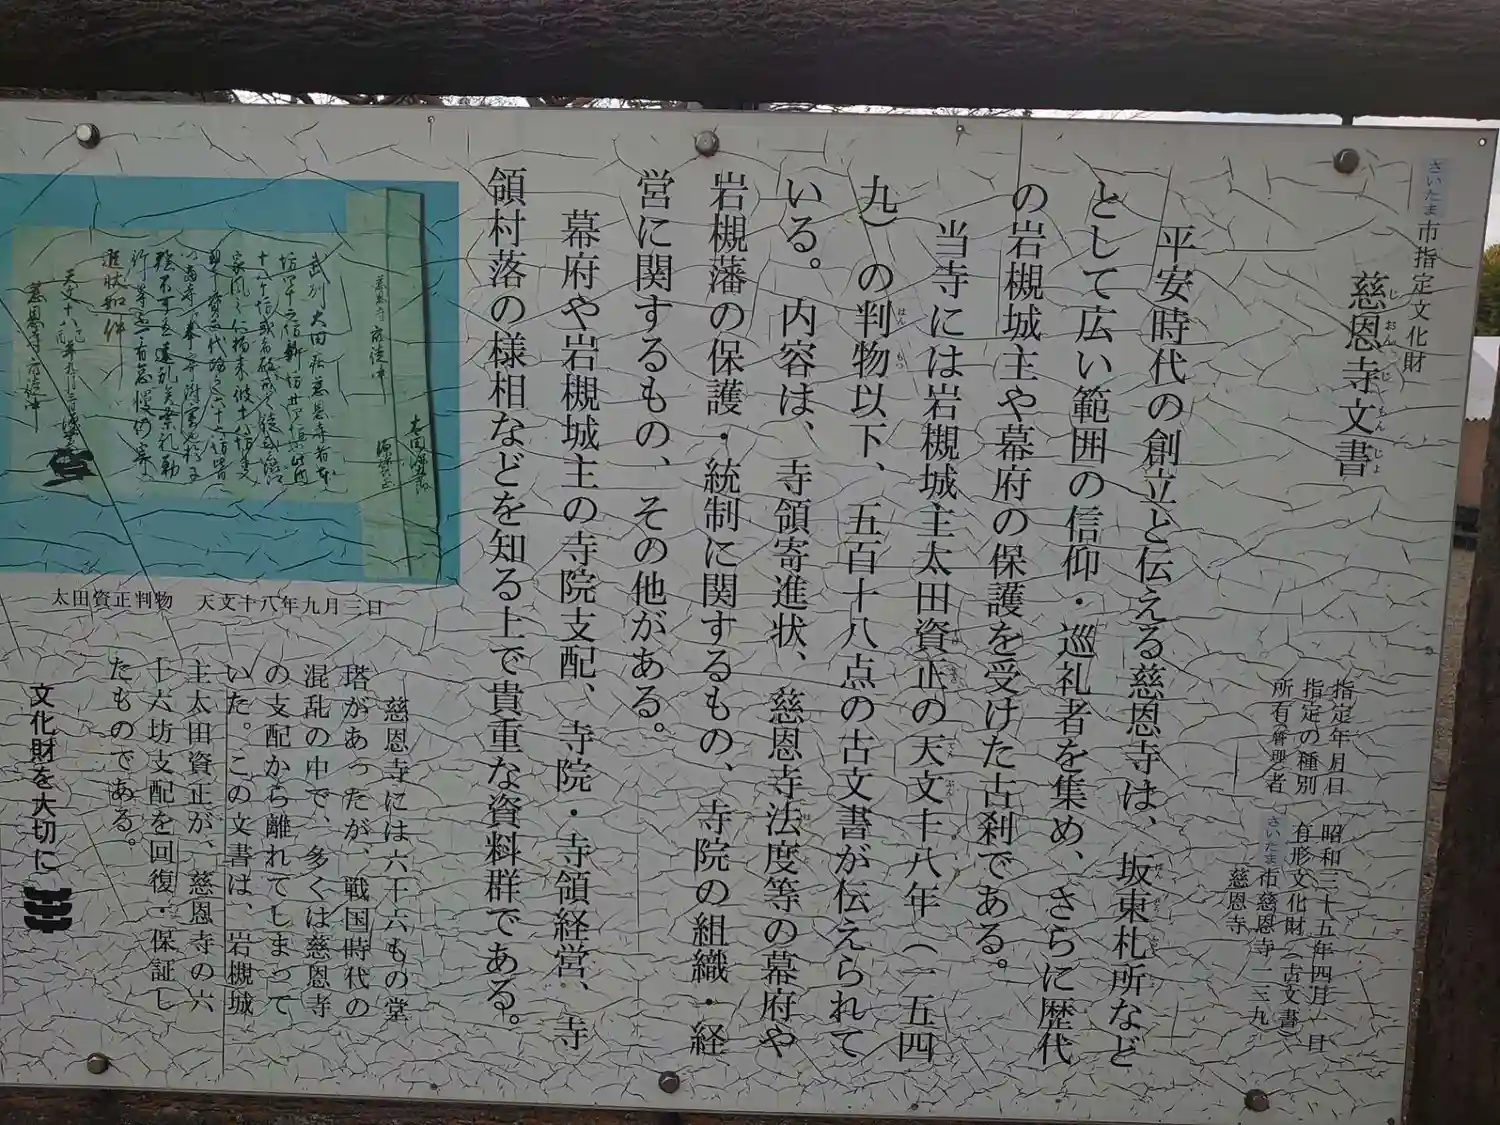 さいたま市指定文化財
慈恩寺文書
じおんじもんじょ
指定年月日　昭和三十五年四月一日
指定の種別　有形文化財（古文書）
所有管理者　さいたま市慈恩寺一三九
慈恩寺
平安時代の創立と伝える慈恩寺は、坂東札所など
として広い範囲の信仰・巡礼者を集め、さらに歴代
の岩槻城主や幕府の保護を受けた古刹である。
当寺には岩槻城主太田資正の天文十八年（一五四
九）の判物以下、五百十八点の古文書が伝えられて
いる。内容は、寺領寄進状、慈恩寺法度等の幕府や
岩槻藩の保護・統制に関するもの、寺院の組織・経
営に関するもの、その他がある。
幕府や岩槻城主の寺院支配、寺院・寺領経営、寺
領村落の様相などを知る上で貴重な資料群である。
太田資正判物　天文十八年九月三日
慈恩寺には六十六もの堂
塔があったが、戦国時代の
混乱の中で、多くは慈恩寺
の支配から離れてしまって
いた。この文書は、岩槻城
主太田資正が、慈恩寺の六
十六坊支配を回復・保証し
たものである。
文化財を大切に